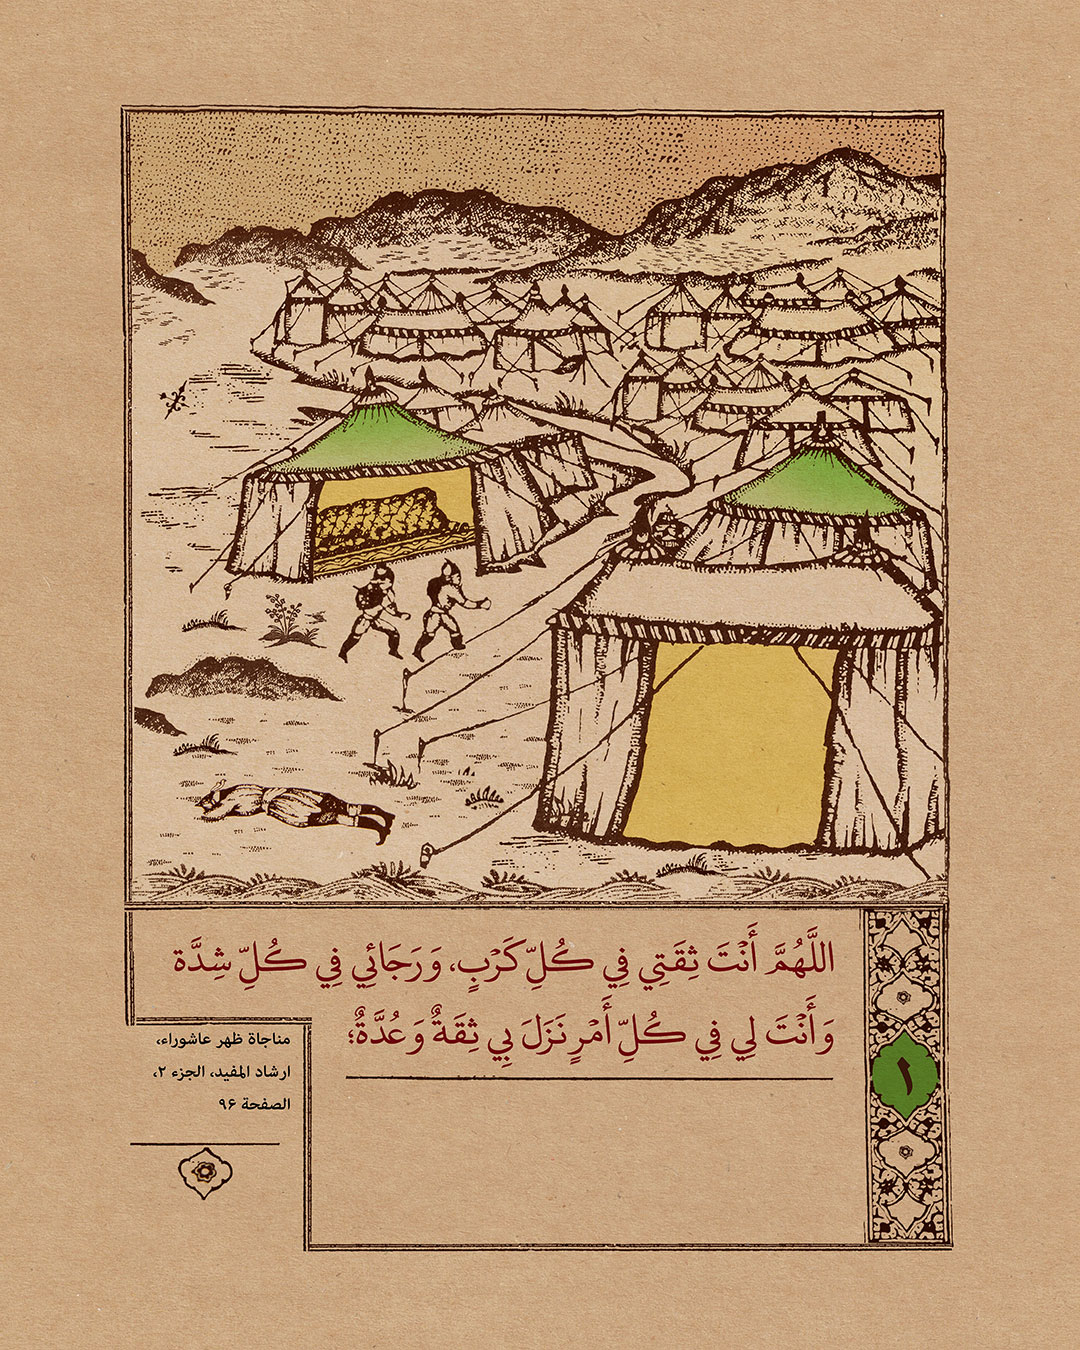 اللَّهُمَّ أَنْتَ ثِقَتِي فِي كُلِّ كَرْبٍ، وَرَجَائِي فِي كُلِّ شِدَّة
وَأَنْتَ لِي فِي كُلِّ أَمْرٍ نَزَلَ بِي ثِقَةٌ وَعُدَّةٌ؛
۱
مناجاة ظهر عاشوراء،
ارشاد المفيد، الجزء ۲،
الصفحة ۹۶